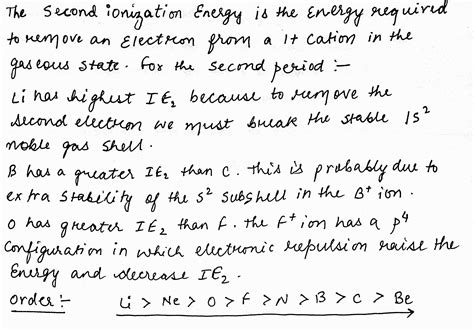 The Second ionization Energy is the Energy required
to remove an Electron from a 1+ Cation in the
gaseous state. For the second period :-
Li has highest IE₂ because to remove the
second electron we must break the stable 1s²
noble gas shell.
B has a greater IE₂ than C. this is probably due to
extra stability of the s² subshell in the B⁺ ion.
O has greater IE₂ than F. the F⁺ ion has a p⁴
Configuration in which electronic repulsion raise the
Energy and decrease IE₂.
Order :- Li > Ne > O > F > N > B > C > Be